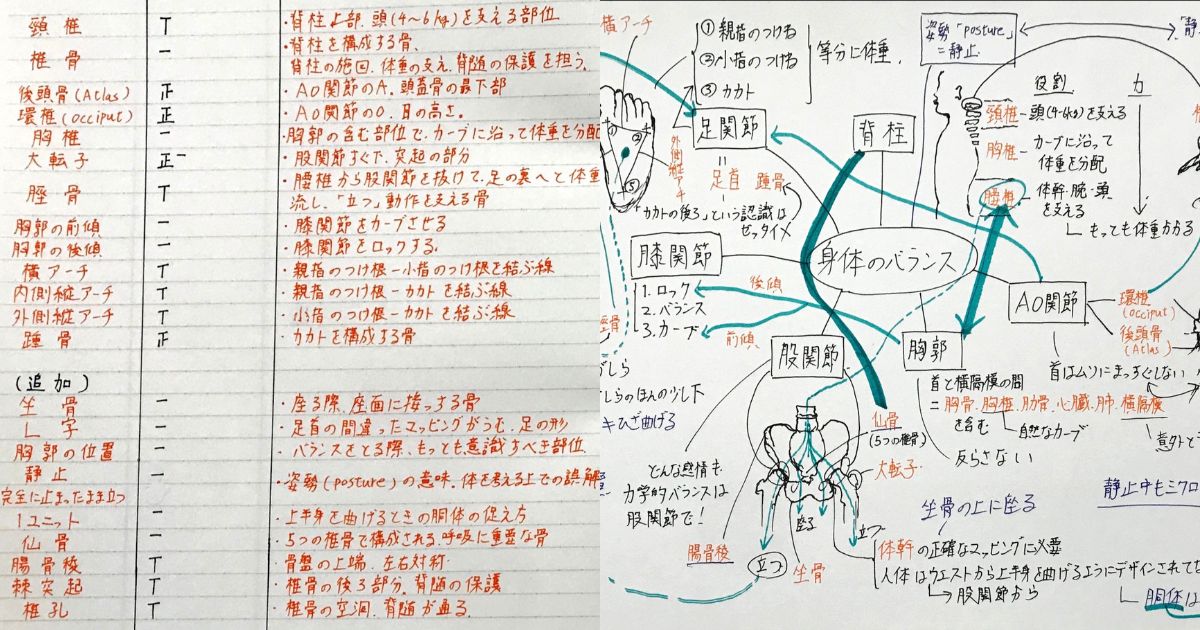 頸椎 T ・脊柱上部.頭(4~6kg)を支える部位
椎骨 一 ・脊柱を構成する骨.
脊柱の施回.体重の支え.脊髄の保護を担う.
後頭骨(Atlas) 正 ・AO関節のA.頭蓋骨の最下部
環椎(occiput) 正 ・AO関節のO.耳の高さ.
胸椎 一 ・胸郭の含む部位で.カーブに沿って体重を分配
大転子 正一 ・股関節すぐ下.突起の部分
脛骨 T ・腰椎から股関節を抜けて.足の裏へと体重
流し.「立つ」動作を支える骨
胸郭の前傾 一 ・膝関節をカーブさせる
胸郭の後傾 一 ・膝関節をロックする.
横アーチ T ・親指のつけ根-小指のつけ根を結ぶ線
内側縦アーチ T ・親指のつけ根-カカトを結ぶ線
外側縦アーチ T ・小指のつけ根-カカトを結ぶ線
踵骨 正 ・カカトを構成する骨
(追加)
坐骨 一 ・座る際.座面に接っする骨
L字 一 ・足首の間違ったマッピングがうむ.足の形
胸郭の位置 一 ・バランスをとる際.もっとも意識すべき部位
静止 一 ・姿勢(posture)の意味.体を考える上での誤解
完全に止まったまま立つ
1ユニット 一 ・上半身を曲げるときの胴体の促え方
仙骨 一 ・5つの椎骨で構成される.呼吸に重要な骨
腸骨稜 T ・骨盤の上端.左右対称.
棘突起 T ・椎骨の後ろ部分.脊随の保護
椎孔 T ・椎骨の空洞.脊随が通る.
横アーチ
①親指のつけね
②小指のつけね
③カカト
等分に体重.
足関節
外側縦アーチ
足首 踵骨
「カカトの後ろ」という認識は
ゼッタイ×
姿勢「posture」
=静止.
「静
脊柱
役割 力
頸椎-頭(4-6kg)を支える
胸椎-カーブに沿って
体重を分配
腰椎-体幹・腕・頭
を支える
もっても体重かかる
身体のバランス
膝関節
1.ロック
2.バランス
3.カーブ
後傾
前傾
AO関節
環椎
(occiput)
後頭骨
(Atlas)
首はムリにまっすぐしない
股関節
胸郭
首と横隔模の間
=胸骨.胸椎.肋骨.心臓.肺.横隔模
を含む 自然なカーブ
反らさない
意外と
しらのほんの少し下
キひざ曲げる
仙骨
(5つの椎骨)
大転子
どんな感情も
力学的バランスは
股関節で!
腸骨稜
座る
立つ
立つ
坐骨
坐骨の上に座る
静止中もミクロ
体幹の正確なマッピングに必要
人体はウエストから上半身を曲げるようにデザインされて
股関節から
胴体は